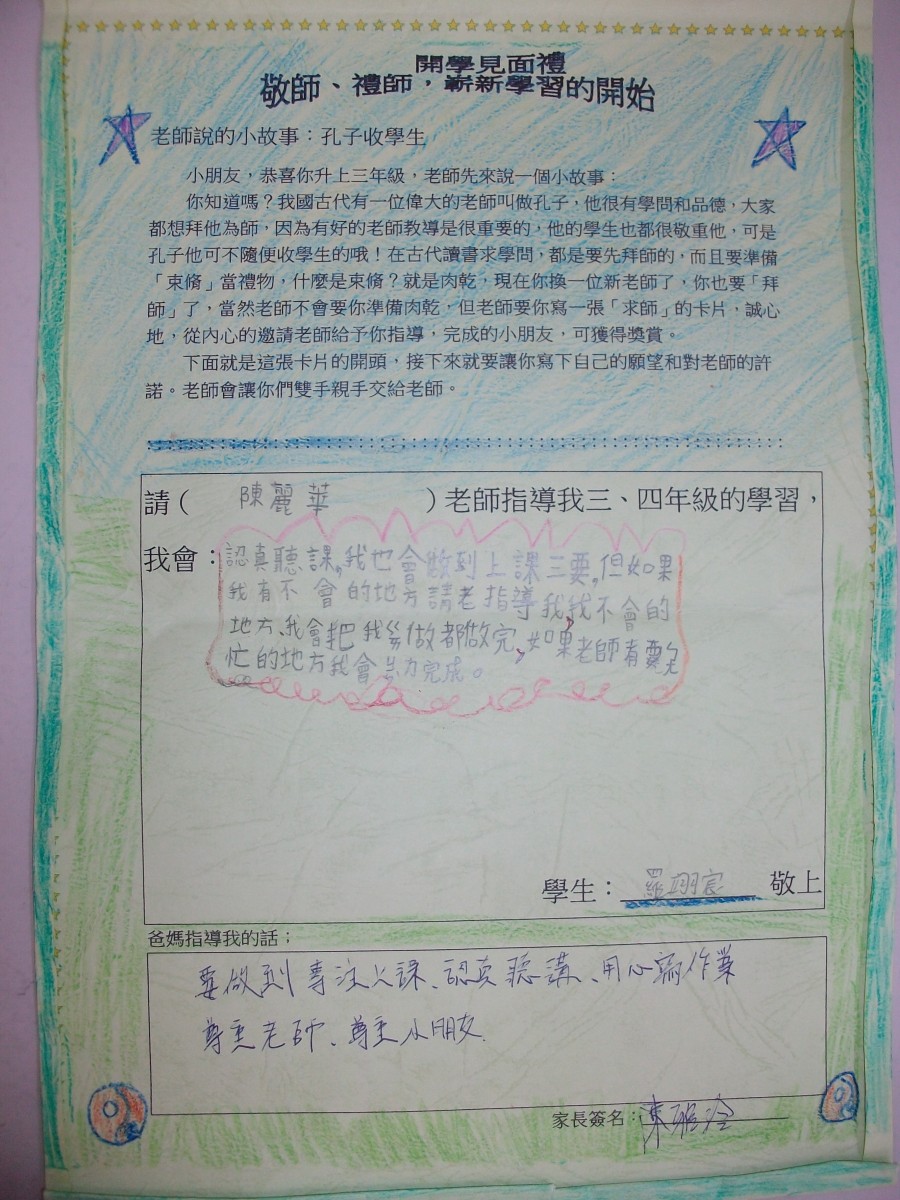 開學見面禮
敬師、禮師，嶄新學習的開始
老師說的小故事：孔子收學生
小朋友，恭喜你升上三年級，老師先來說一個小故事：
你知道嗎？我國古代有一位偉大的老師叫做孔子，他很有學問和品德，大家
都想拜他為師，因為有好的老師教導是很重要的，他的學生也都很敬重他，可是
孔子他可不隨便收學生的哦！在古代讀書求學問，都是要先拜師的，而且要準備
「束脩」當禮物，什麼是束脩？就是肉乾，現在你換一位新老師了，你也要「拜
師」了，當然老師不會要你準備肉乾，但老師要你寫一張「求師」的卡片，誠心
地，從內心的邀請老師給予你指導，完成的小朋友，可獲得獎賞。
下面就是這張卡片的開頭，接下來就要讓你寫下自己的願望和對老師的許
諾。老師會讓你們雙手親手交給老師。
請（ 陳麗華 ）老師指導我三、四年級的學習，
我會：認真聽課，我也會做到上課三要，但如果
我有不會的地方請老指導我，我不會的
地方、我會把我ㄢ做都做完，如果老師有要ㄅ
忙的地方我會努力完成。
學生：羅翊宸 敬上
爸媽指導我的話；
要做到專注上課、認真聽講、用心寫作業
尊重老師、尊重小朋友
家長簽名：